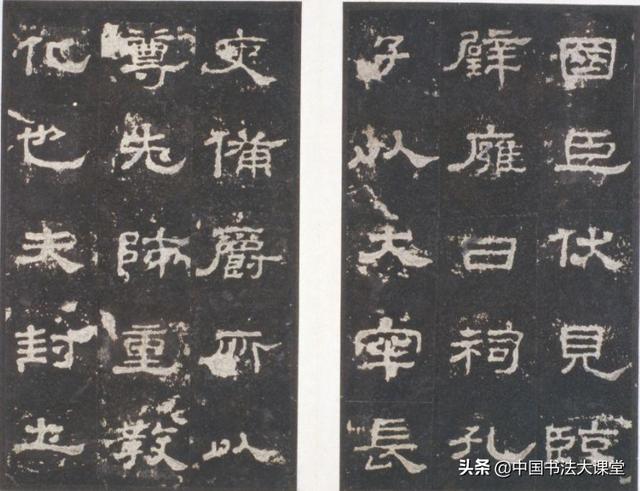 國臣伏見臨
璧雍日祠孔
子以大宰長
吏備爵所以
尊先師重教
化也夫封土
头条 @中国书法大课堂